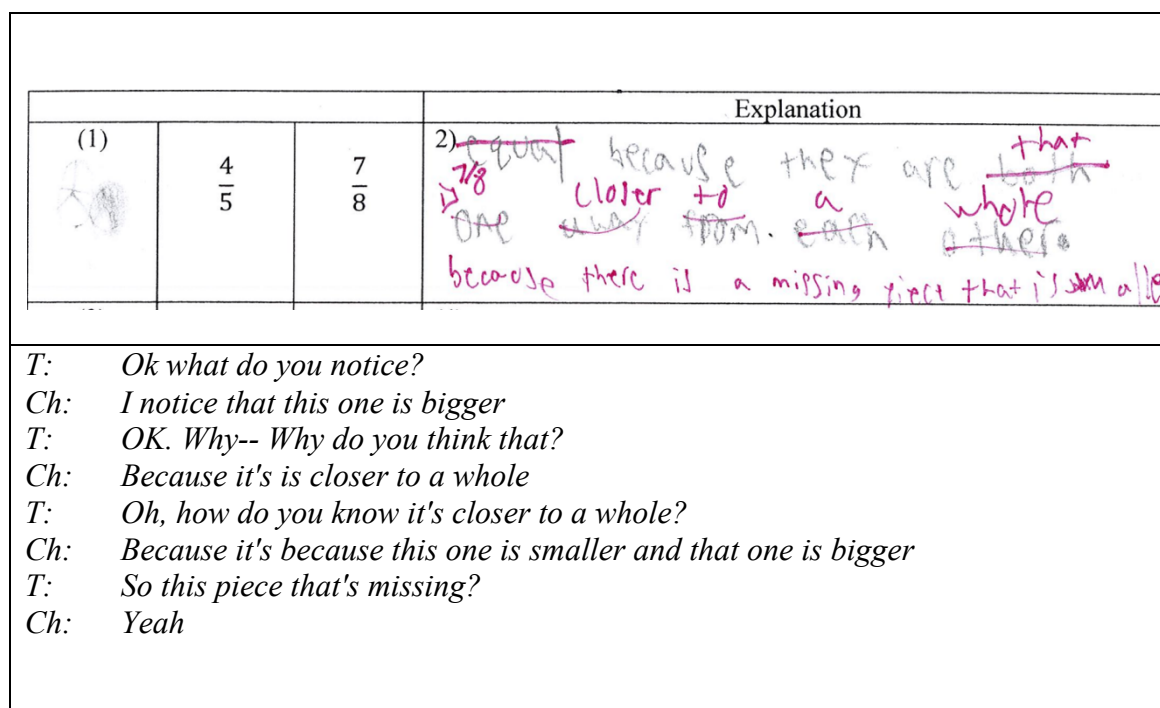 Explanation
(1)
4/5
7/8
2) equal because they are both that
7/8
is closer to a whole
one away from. each other.
because there is a missing piece that is smalle
T: Ok what do you notice?
Ch: I notice that this one is bigger
T: OK. Why-- Why do you think that?
Ch: Because it's is closer to a whole
T: Oh, how do you know it's closer to a whole?
Ch: Because it's because this one is smaller and that one is bigger
T: So this piece that's missing?
Ch: Yeah